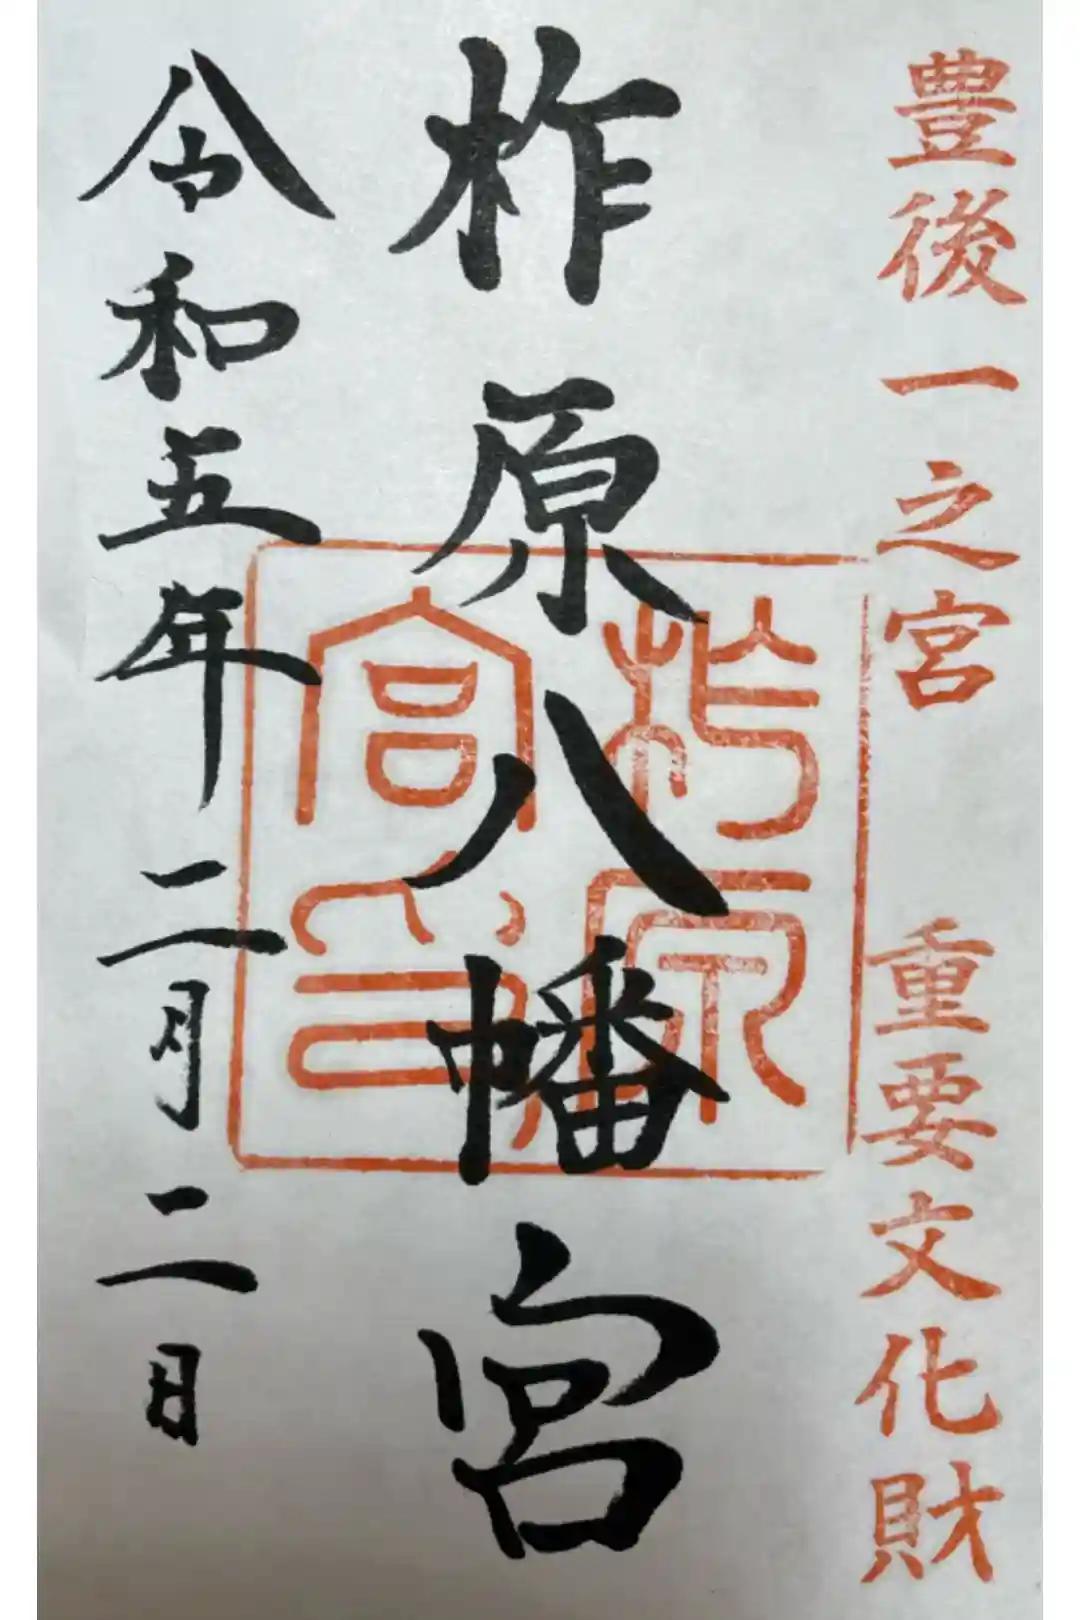 豊後一之宮 重要文化財
柞原八幡宮
柞原宮印
令和五年二月二日